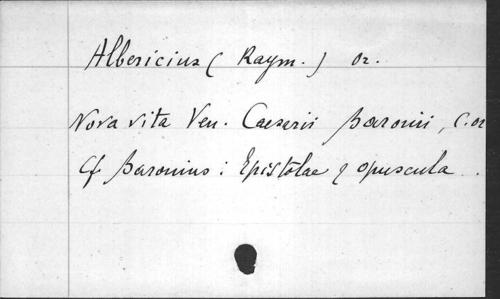 Albericius (Raym.) Or.
Nova vita Ven. Caesarii Baronii, C. or
Cf Baronius : Epistolae & opuscula .